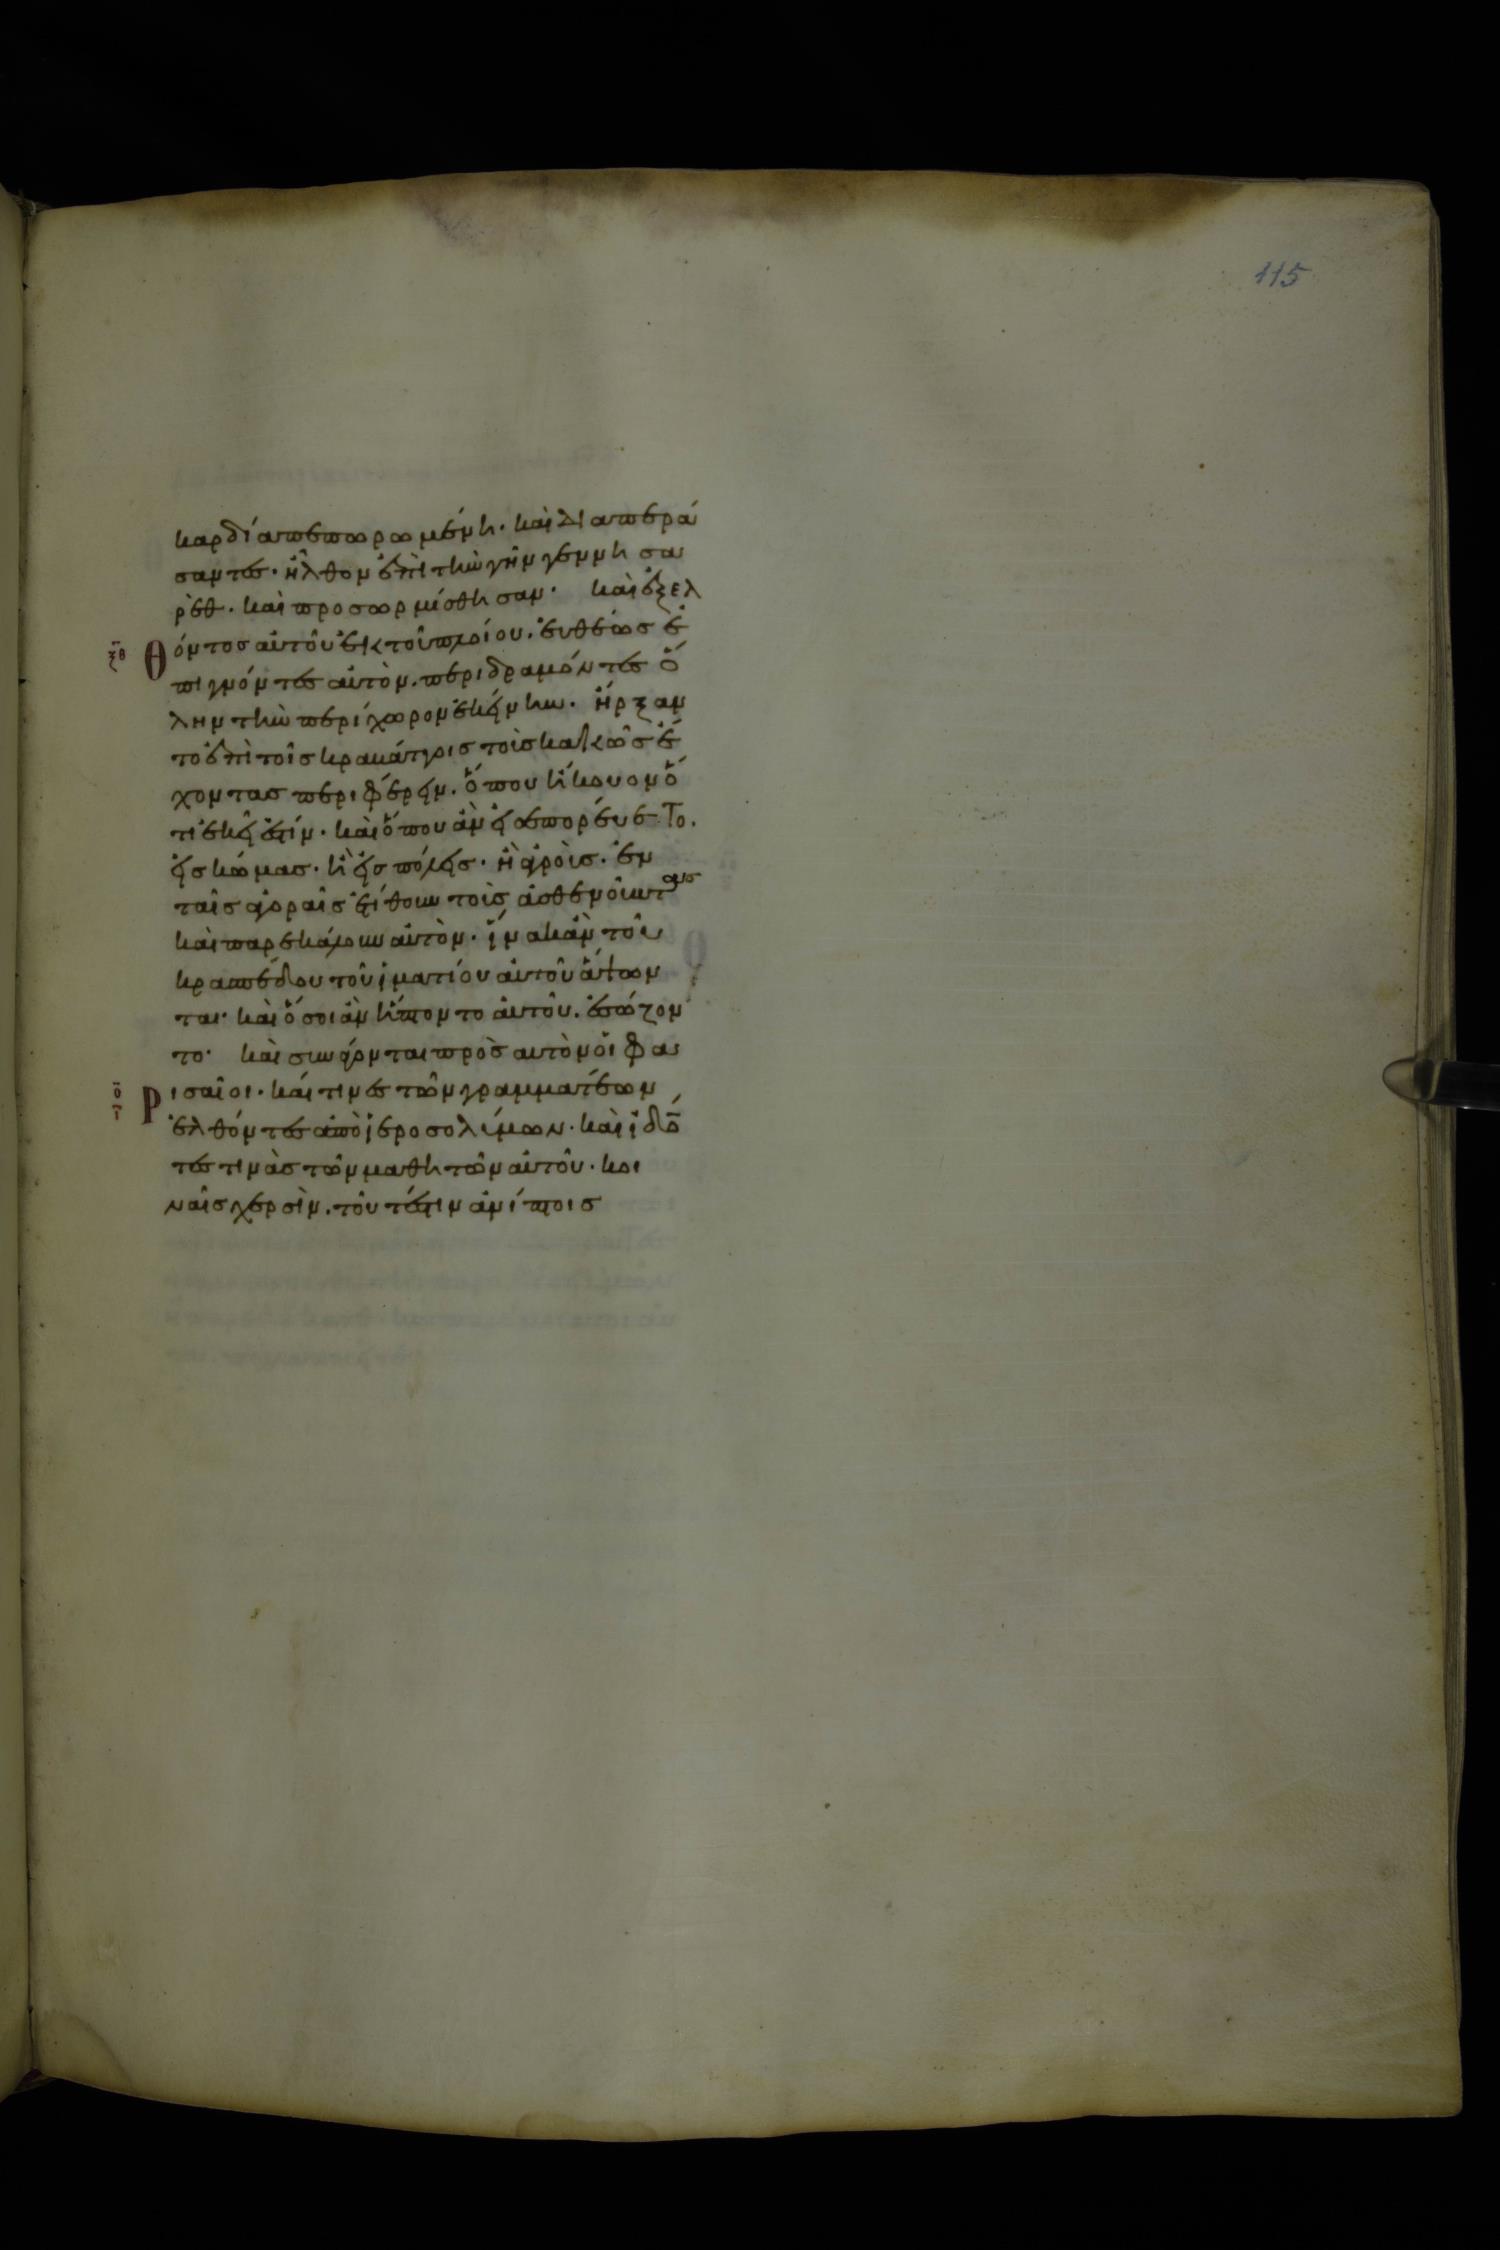 115
καρδία πεπωρωμένη· καὶ διαπερά
σαντες· ἦλθον ἐπὶ τὴν γῆν γεννησα
ρὲθ· καὶ προσωρμίσθησαν· καὶ ἐξελ
ξθ Θόντος αὐτοῦ ἐκ τοῦ πλοίου· ἐυθέως ἐ
πιγνόντες αὐτὸν· περιδραμόντες ὅ
λην τὴν περίχωρον ἐκείνην· ἤρξαν
το ἐπὶ τοῖς κραββάτοις τοὺς κακῶς ἔ
χοντας περιφέρειν· ὅπου ἤκουον ὅ
τι ἐκεῖ ἐστίν· καὶ ὅπου ἂν εἰσεπορέυετο·
εἰς κώμας· ἢ εἰς πόλεις· ἢ ἀγροὺς· ἐν
ταῖς ἀγοραῖς ἐτίθουν τοὺς ἀσθενοῦντας
καὶ παρεκάλουν αὐτὸν· ἵνα κἂν τοῦ
κρασπέδου τοῦ ἱματίου αὐτοῦ ἅψων
ται· καὶ ὅσοι ἂν ἥπτοντο αὐτοῦ· ἐσώζον
το· καὶ συνάγονται πρὸς αὐτὸν οἱ Φα
ο Ρισαῖοι· καί τινες τῶν γραμματέων
ἐλθόντες ἀπὸ ἱεροσολύμων· καὶ ἰδό
τες τινὰς τῶν μαθητῶν αὐτοῦ· κοι
ναῖς χερσὶν· τοῦτέστιν ἀνίπτοις